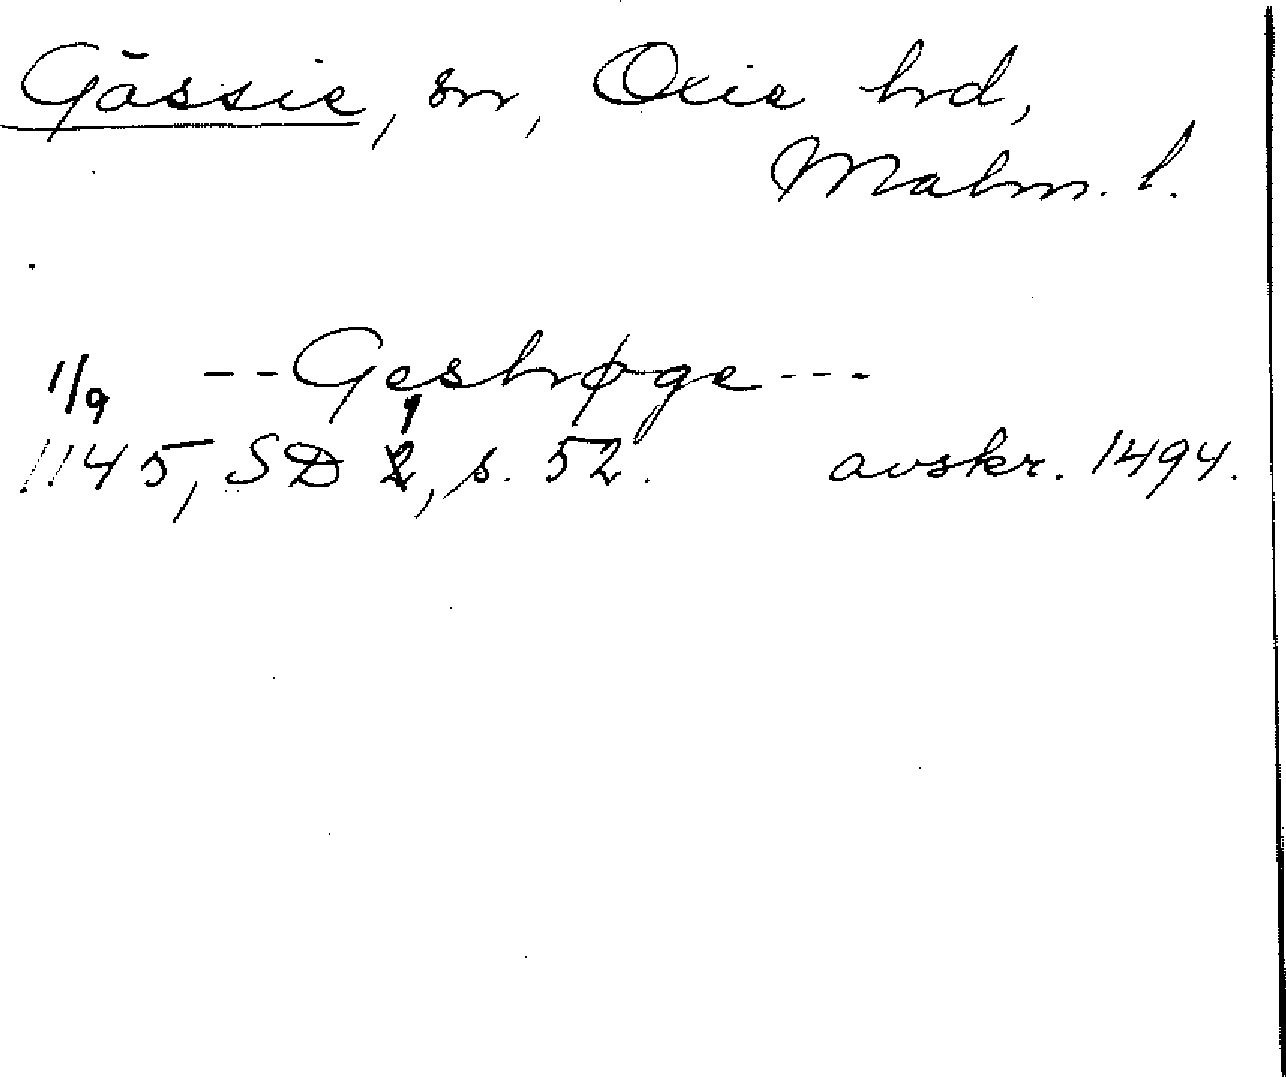 Gässie, sn, Oxie hrd,
Malm. l.
1/9 --Geshøge---
1145, SD 1, s. 52. avskr. 1494.